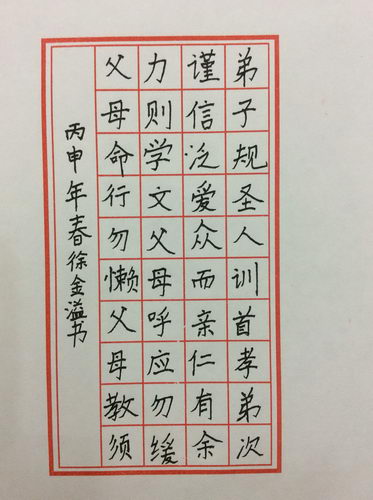 弟子规圣人训首孝弟次
谨信泛爱众而亲仁有余
力则学文父母呼应勿缓
父母命行勿懒父母教须
丙申年春徐金溢书